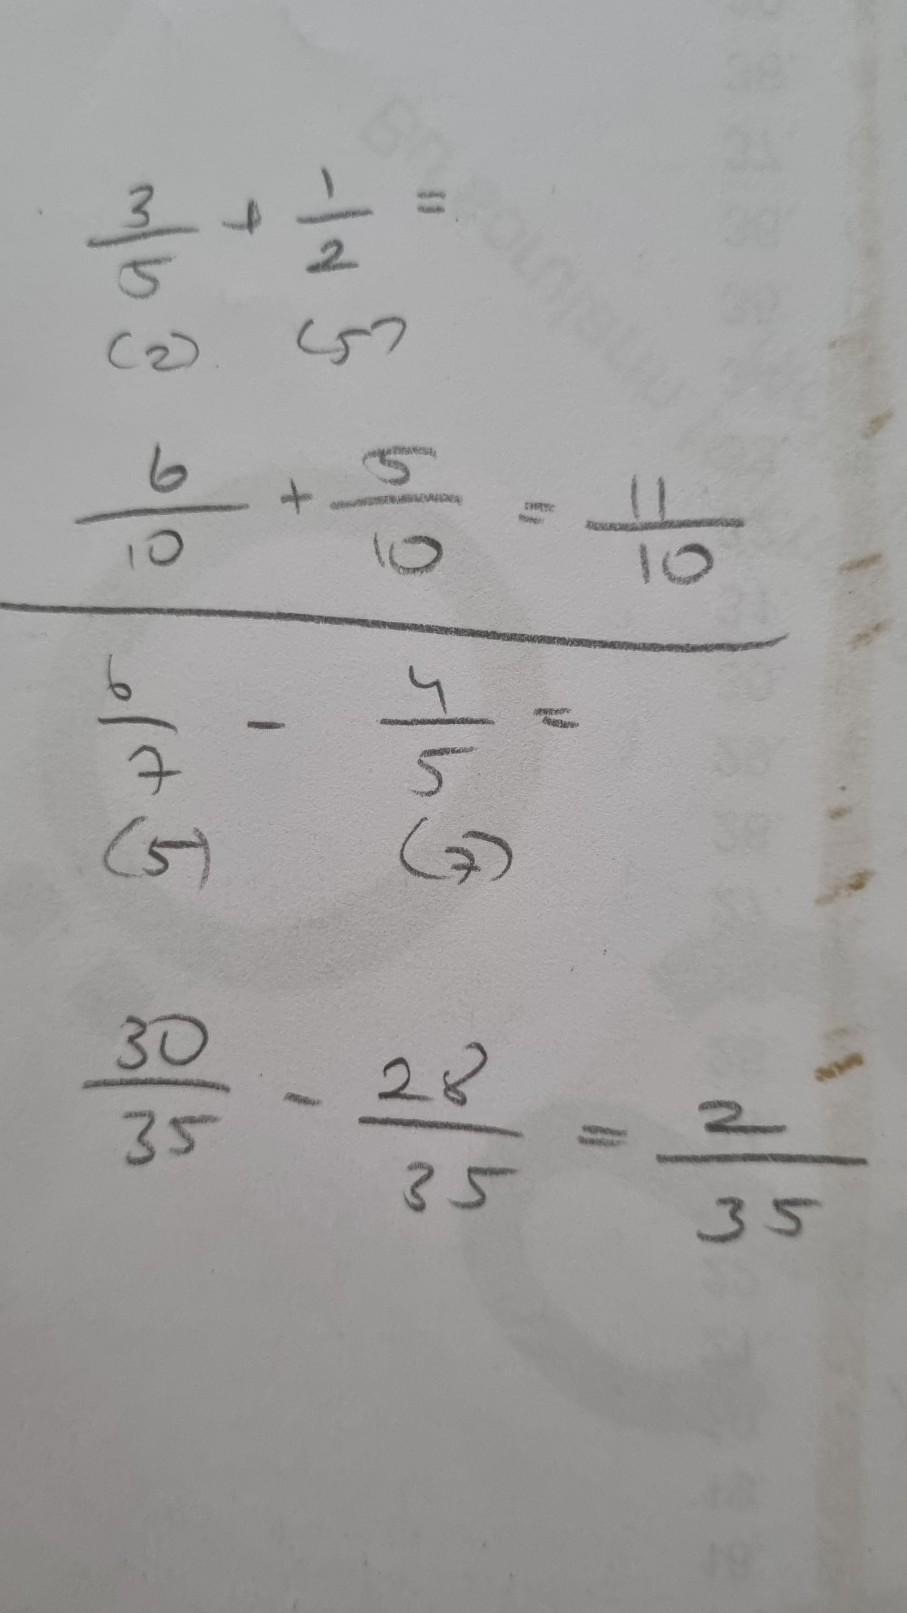 3/5 + 1/2 =
(2) (5)
6/10 + 5/10 = 11/10
6/7 - 4/5 =
(5) (7)
30/35 - 28/35 = 2/35